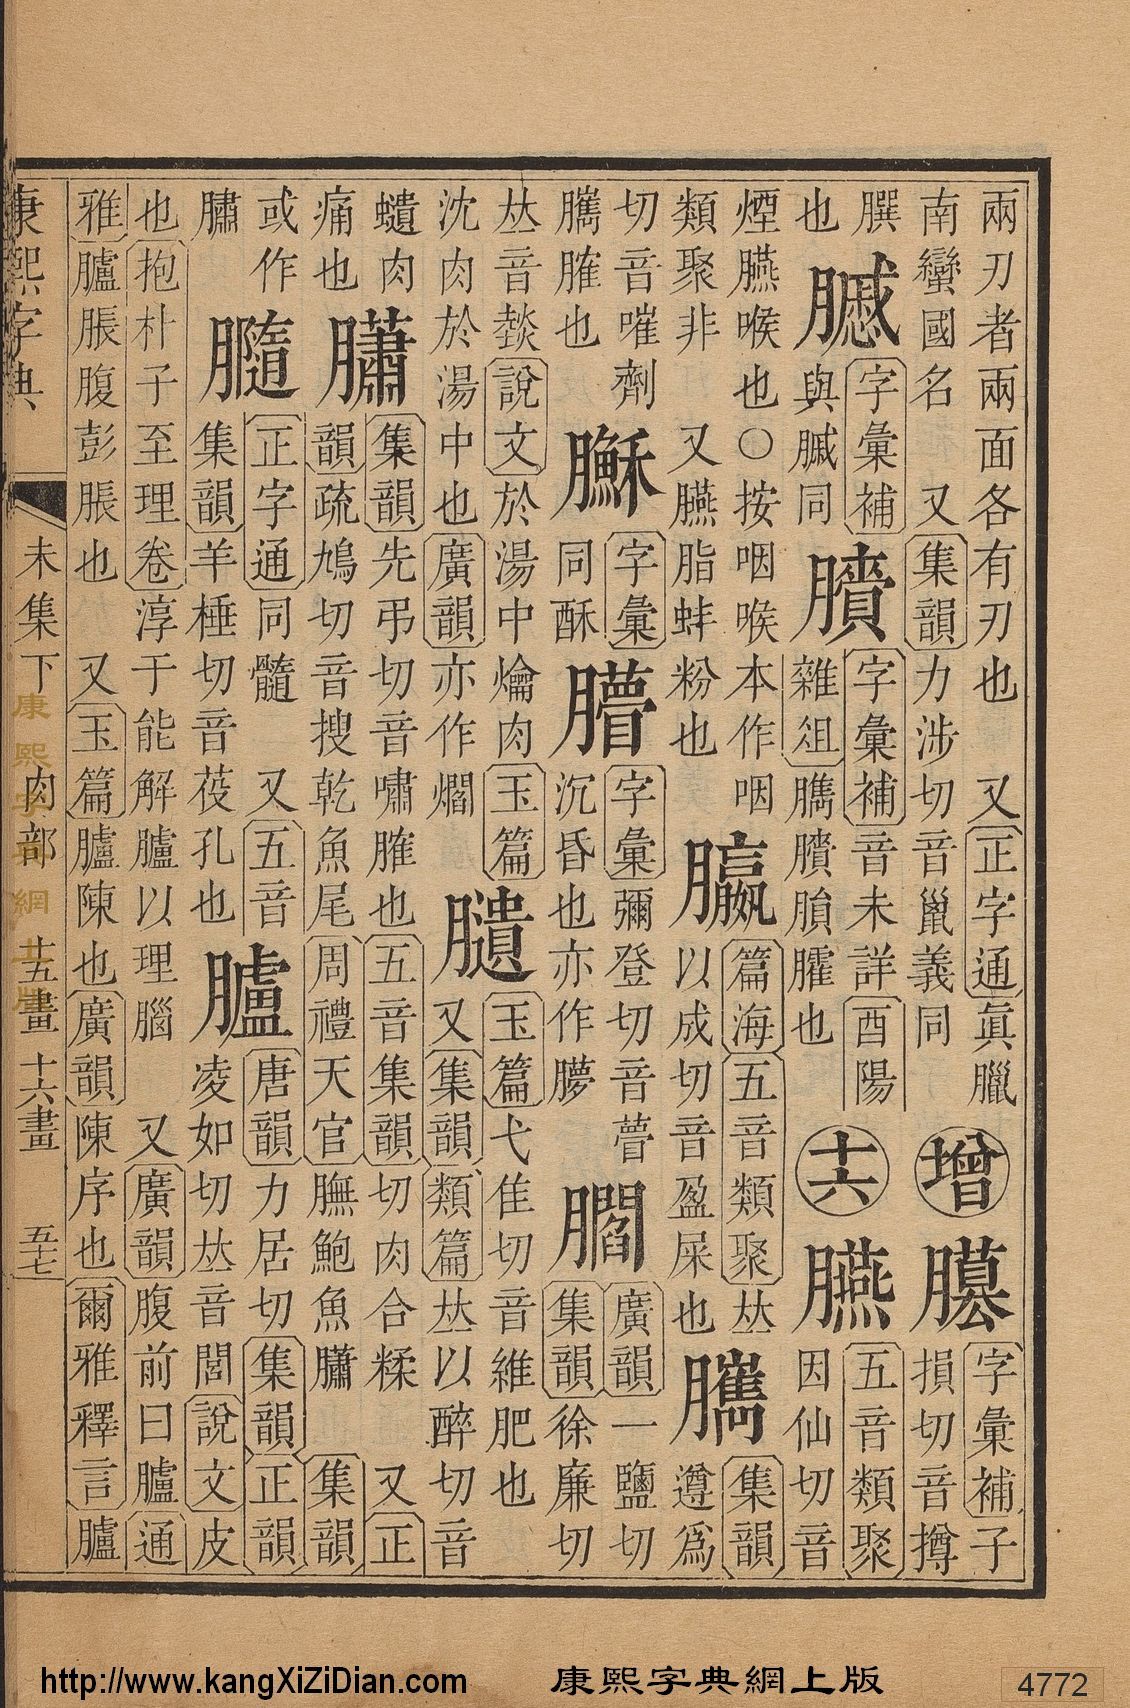 兩刃者兩面各有刃也 又正字通眞臘
南蠻國名 又集韻力涉切音巤義同
增
字彙補子
損切音撙
也
字彙補
與同
字彙補音未詳酉陽
雜俎臛也
十六
臙
五音類聚
因仙切音
煙臙喉也○按咽喉本作咽
類聚非 又臙脂蚌粉也
篇海五音類聚𠀤
以成切音盈屎也
集韻
遵爲
切音嗺劑
脽也
字彙
同酥
字彙彌登切音瞢
沉昏也亦作
廣韻一鹽切
集韻徐廉切
𠀤音燅說文於湯中爚肉玉篇
沈肉於湯中也廣韻亦作爓
玉篇弋隹切音維肥也
又集韻類篇𠀤以醉切音
肉
痛也
集韻先弔切音嘯脽也五音集韻切肉合糅 又正
韻疏鳩切音搜乾魚尾周禮天官膴鮑魚 集韻
或作
正字通同髓 又五音
集韻羊棰切音莈孔也
臚
唐韻力居切集韻正韻
凌如切𠀤音閭說文皮
也抱朴子至理卷淳于能解臚以理腦 又廣韻腹前曰臚通
雅臚脹腹彭脹也 又玉篇臚陳也廣韻陳序也爾雅釋言臚
康熙字典
未集下 肉部 十五畫 十六畫 五十七
康熙字典網上版
http://www.kangXiZiDian.com
康熙字典網上版
4772